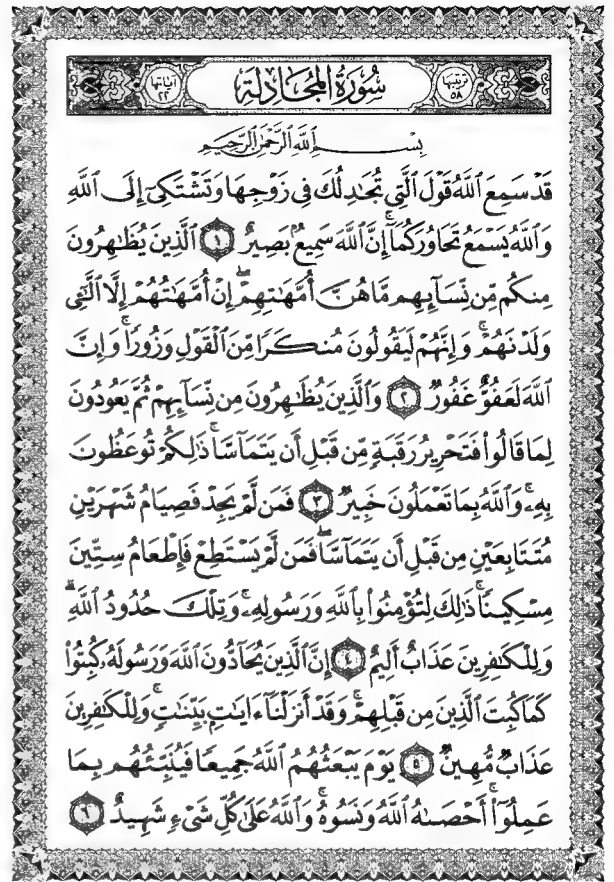 ترتيبها ٥٨ سُورَةُ المُجَادِلَةِ آياتها ٢٢
بِسْمِ اللَّهِ الرَّحْمَٰنِ الرَّحِيمِ
قَدْ سَمِعَ اللَّهُ قَوْلَ الَّتِي تُجَادِلُكَ فِي زَوْجِهَا وَتَشْتَكِيٓ إِلَى اللَّهِ
وَاللَّهُ يَسْمَعُ تَحَاوُرَكُمَآ ۚ إِنَّ اللَّهَ سَمِيعٌۢ بَصِيرٌ ١ الَّذِينَ يُظَاهِرُونَ
مِنكُم مِّن نِّسَآئِهِم مَّا هُنَّ أُمَّهَاتِهِمْ ۖ إِنْ أُمَّهَاتُهُمْ إِلَّا الَّٰٓـِٔي
وَلَدْنَهُمْ ۚ وَإِنَّهُمْ لَيَقُولُونَ مُنكَرًا مِّنَ الْقَوْلِ وَزُورًا ۚ وَإِنَّ
اللَّهَ لَعَفُوٌّ غَفُورٌ ٢ وَالَّذِينَ يُظَاهِرُونَ مِن نِّسَآئِهِمْ ثُمَّ يَعُودُونَ
لِمَا قَالُوا۟ فَتَحْرِيرُ رَقَبَةٍ مِّن قَبْلِ أَن يَتَمَآسَّا ۚ ذَٰلِكُمْ تُوعَظُونَ
بِهِۦ ۚ وَاللَّهُ بِمَا تَعْمَلُونَ خَبِيرٌ ٣ فَمَن لَّمْ يَجِدْ فَصِيَامُ شَهْرَيْنِ
مُتَتَابِعَيْنِ مِن قَبْلِ أَن يَتَمَآسَّا ۖ فَمَن لَّمْ يَسْتَطِعْ فَإِطْعَامُ سِتِّينَ
مِسْكِينًا ۚ ذَٰلِكَ لِتُؤْمِنُوا۟ بِاللَّهِ وَرَسُولِهِۦ ۚ وَتِلْكَ حُدُودُ اللَّهِ ۗ
وَلِلْكَافِرِينَ عَذَابٌ أَلِيمٌ ٤ إِنَّ الَّذِينَ يُحَآدُّونَ اللَّهَ وَرَسُولَهُۥ كُبِتُوا۟
كَمَا كُبِتَ الَّذِينَ مِن قَبْلِهِمْ ۚ وَقَدْ أَنزَلْنَآ ءَايَٰتٍۭ بَيِّنَٰتٍ ۚ وَلِلْكَافِرِينَ
عَذَابٌ مُّهِينٌ ٥ يَوْمَ يَبْعَثُهُمُ اللَّهُ جَمِيعًا فَيُنَبِّئُهُم بِمَا
عَمِلُوٓا۟ ۚ أَحْصَىٰهُ اللَّهُ وَنَسُوهُ ۚ وَاللَّهُ عَلَىٰ كُلِّ شَيْءٍ شَهِيدٌ ٦